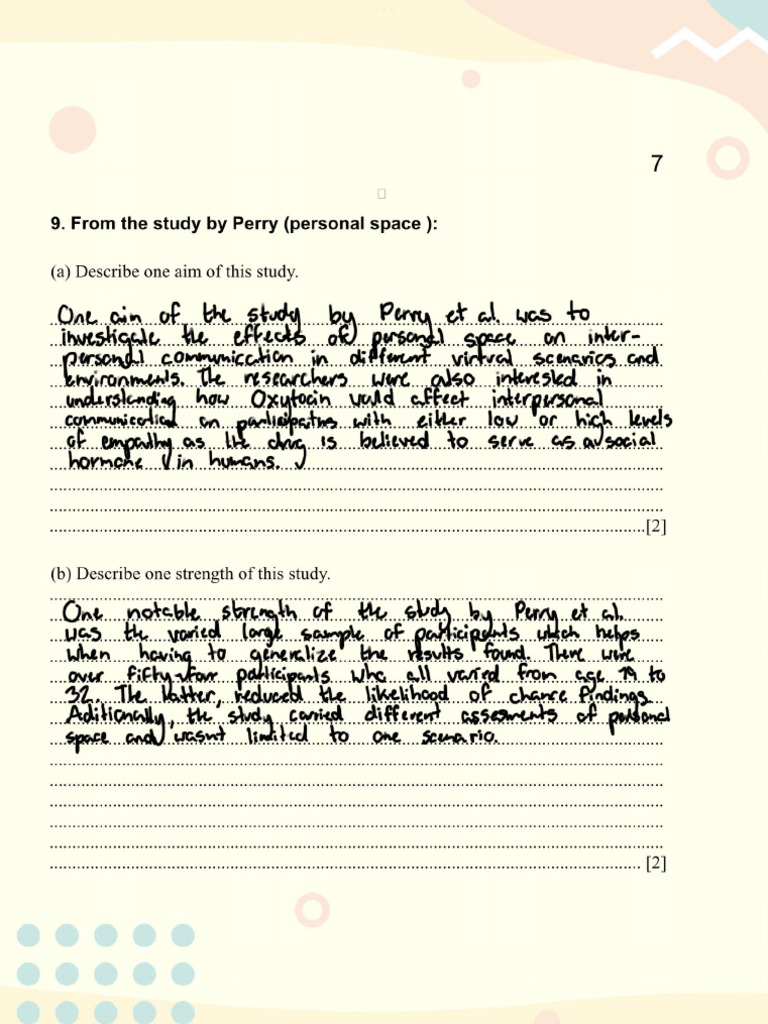 7
9. From the study by Perry (personal space ):
(a) Describe one aim of this study.
One aim of the study by Perry et al. was to
investigate the effects of personal space on inter-
personal communication in different virtual scenarios and
environments. The researchers were also interested in
understanding how Oxytocin would affect interpersonal
communication on participatns with either low or high levels
of empathy as the drug is believed to serve as a social
hormone in humans.
[2]
(b) Describe one strength of this study.
One notable strength of the study by Perry et al.
was the varied large sample of participants which helps
when having to generalize the results found. There were
over fifty-four participants who all varied from age 19 to
32. The latter, reduced the likelihood of chance findings.
Aditionally, the study carried different assesments of personal
space and wasnt limited to one scenario.
[2]